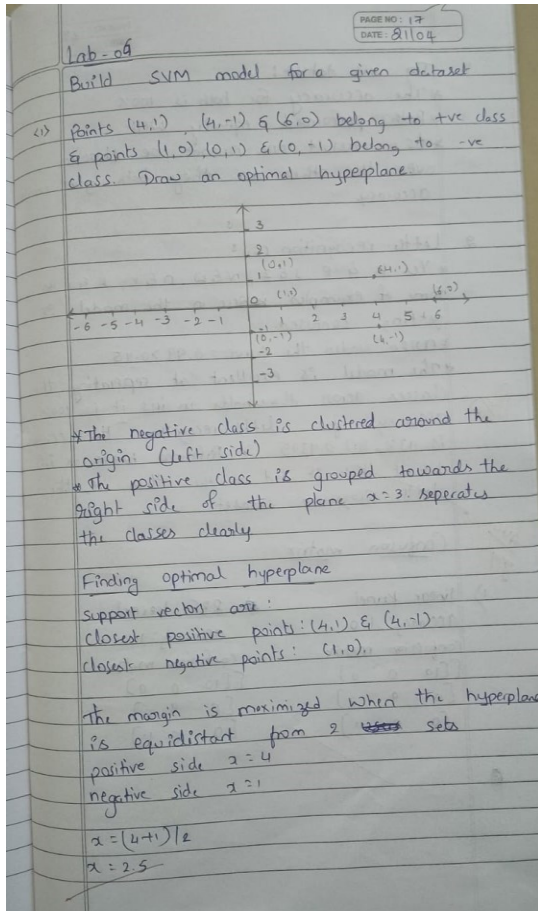 PAGE NO: 17
DATE: 21/04
Lab-09
Build SVM model for a given dataset
<1> Points (4,1), (4,-1) & (6,0) belong to +ve class
& points (1,0), (0,1) & (0,-1) belong to -ve
class. Draw an optimal hyperplane
3
2
(0,1)
1
(4,1)
0 (1,0) (6,0)
-6 -5 -4 -3 -2 -1 2 3 4 5 6
-1
(0,-1) (4,-1)
-2
-3
* The negative class is clustered around the
origin. (left side)
* The positive class is grouped towards the
right side of the plane x=3. seperates
the classes clearly
Finding optimal hyperplane
Support vectors are:
closest positive points: (4,1) & (4,-1)
closest negative points: (1,0).
The margin is maximized when the hyperplane
is equidistant from 2 sets
positive side x=4
negative side x=1
x=(4+1)/2
x=2.5